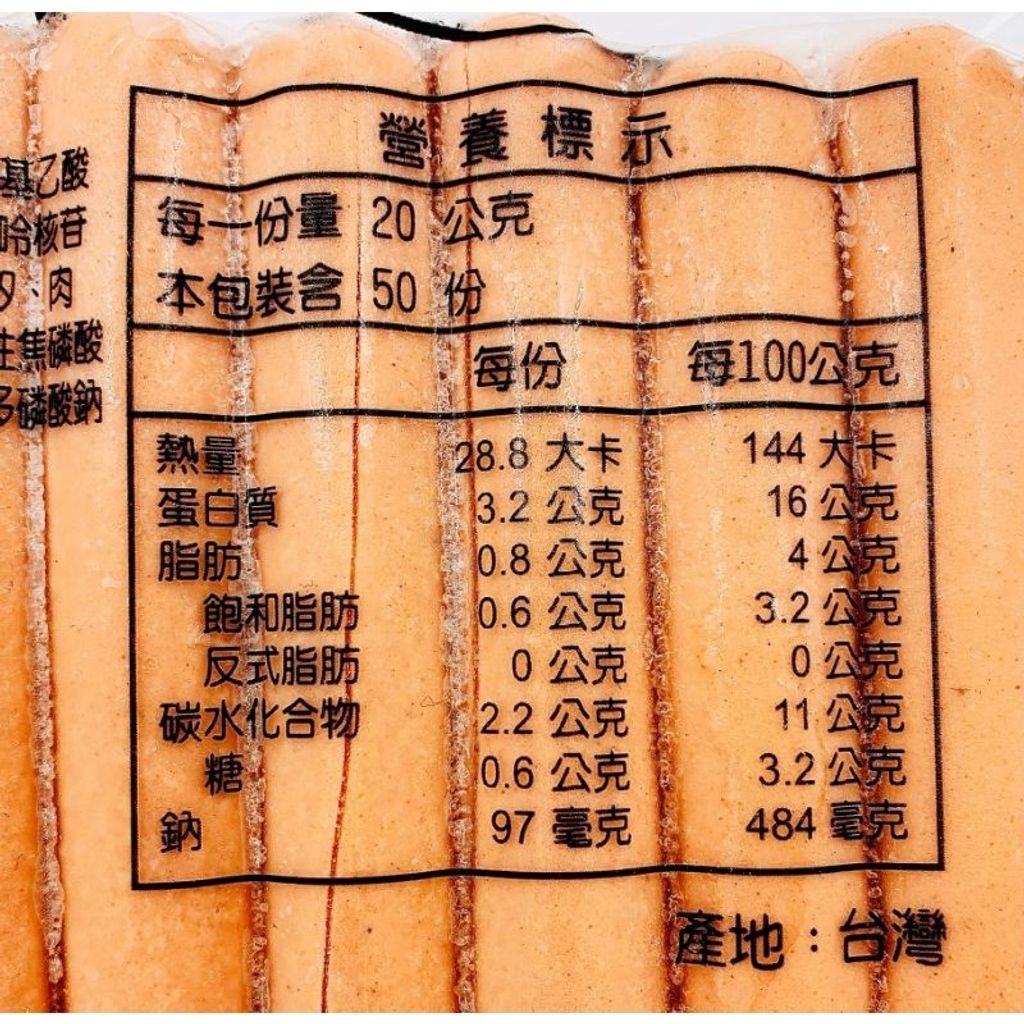 基乙酸
呤核苷
、肉
焦磷酸
多磷酸鈉
營養標示
每一份量 20 公克
本包裝含 50 份
每份 每100公克
熱量 28.8 大卡 144 大卡
蛋白質 3.2 公克 16 公克
脂肪 0.8 公克 4 公克
飽和脂肪 0.6 公克 3.2 公克
反式脂肪 0 公克 0 公克
碳水化合物 2.2 公克 11 公克
糖 0.6 公克 3.2 公克
鈉 97 毫克 484 毫克
產地：台灣